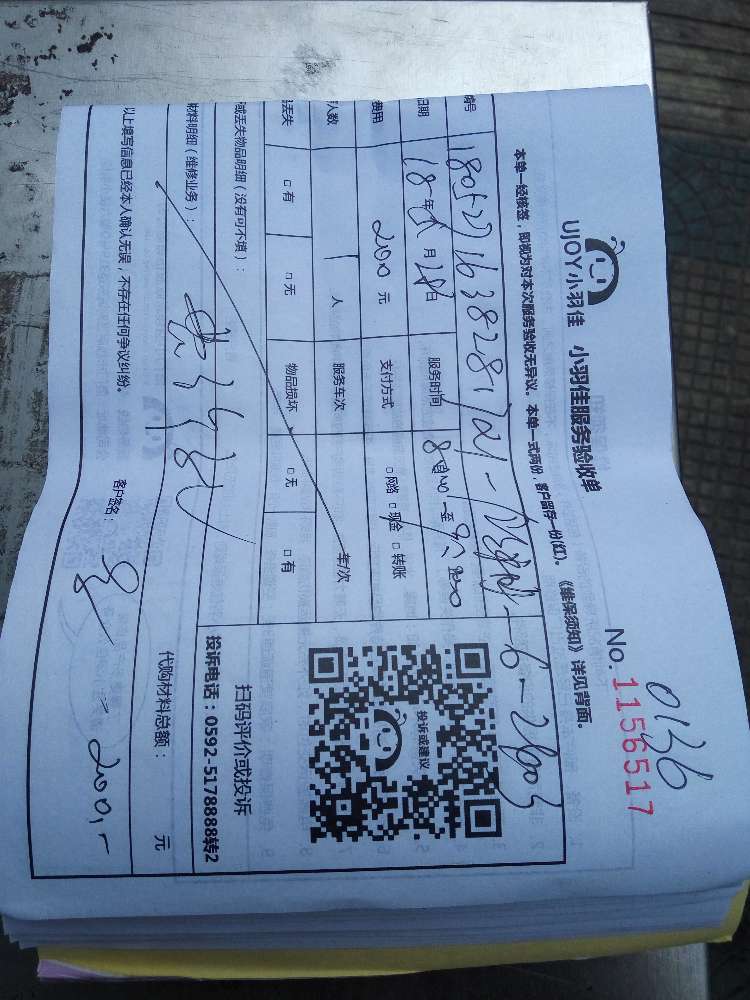 0136
No.1156517
UJOY小羽佳 小羽佳服务验收单
本单一经核签，即视为对本次服务验收无异议。本单一式两份，客户留存一份(红)。《维保须知》详见背面。
编号
日期 18年 月28日 服务时间 至
费用 200元 支付方式 □网络 □现金 □转账
人数 1人 服务车次 车/次
丢失 □有 □无 物品损坏 □无 □有
或丢失物品明细（没有可不填）：
投诉或建议
扫码评价或投诉
投诉电话：0592-5178888转2
材料明细（维修业务）：
代购材料总额： 元
以上填写信息已经本人确认无误，不存在任何争议纠纷。
客户签名：